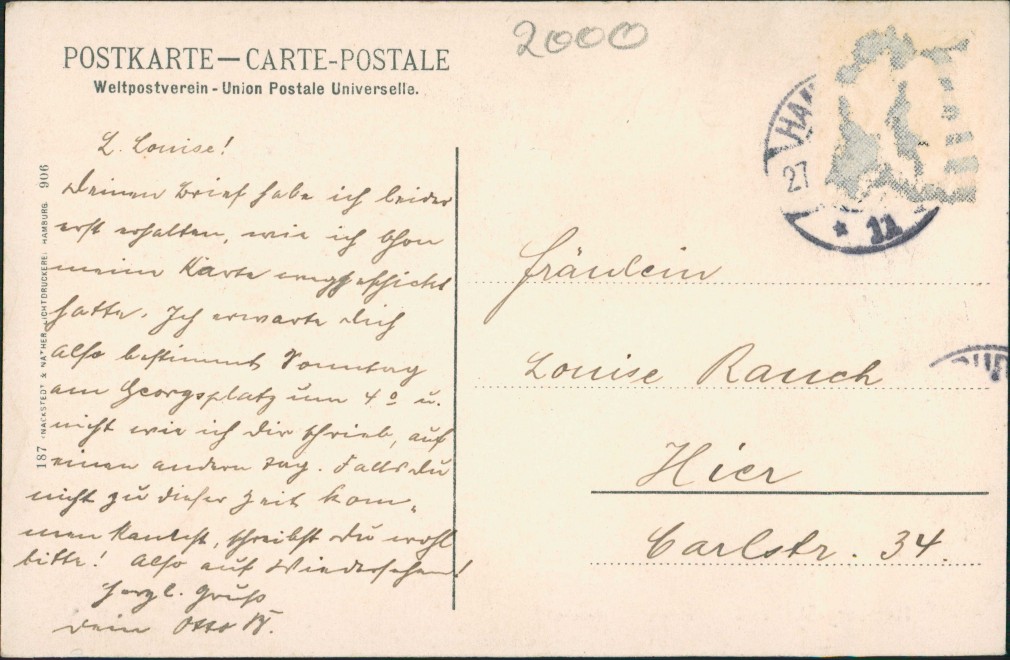 2000
POSTKARTE — CARTE-POSTALE
Weltpostverein - Union Postale Universelle.
L. Louise!
Deinen Brief habe ich leider
erst erhalten, wie ich schon
meine Karte weggeschickt
hatte. Ich erwarte dich
also bestimmt Sonntag
am Georgsplatz um 4° u.
nicht wie ich dir schrieb, auf
einen andern Tag. Falls du
nicht zu dieser Zeit kom-
men kannst, schreibst du wohl
bitte! Also auf Wiedersehen!
Herzl. Gruß
Dein Otto
187 KNACKSTEDT & NÄTHER, LICHTDRUCKEREI, HAMBURG. 906
HAM
27
* 11
BUR
Fräulein
Louise Rauch
Hier
Carlstr. 34.